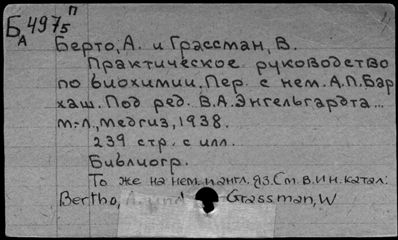 Б 4975 П
А
Берто, А. и Грассман, В.
Практическое руководство
по биохимии. Пер. с нем. А.П. Бар
хаш. Под ред. В.А. Энгельгардта...
М.-Л., Медгиз, 1938.
239 стр. с илл.
Библиогр.
То же на нем. и англ. яз. См. в ин. катал:
Bertho, und Grassman, W